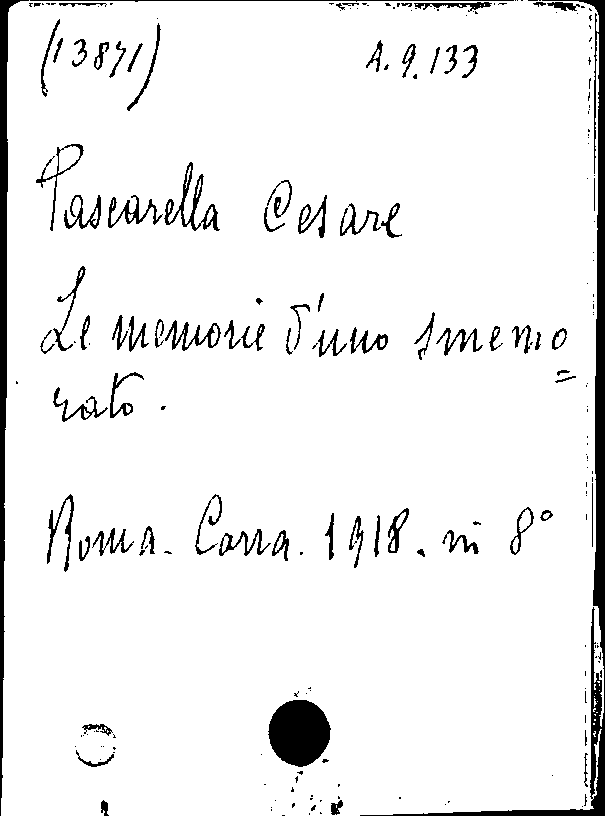 (13871) A.9.133
Pascarella Cesare
Le memorie d'uno smemo=
rato.
Roma. Carra. 1918. in 8°